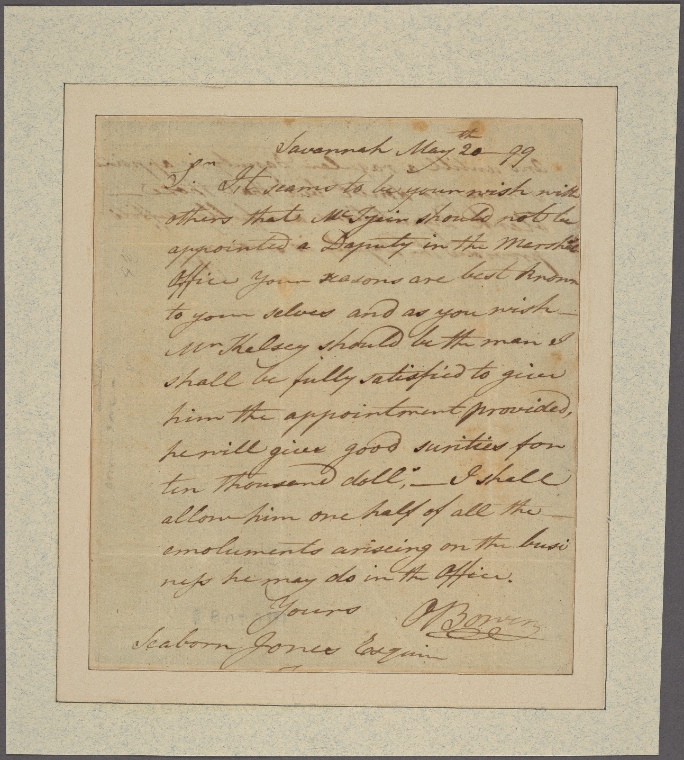 Savannah May 20th 99
Sr It seams to be your wish with
others that Mr should not be
appointed a Daputy in the Marshls
Office your reasons are best known
to your selves and as you wish –
Mr Kelsey should be the man I
shall be fully satisfied to give
him the appointment provided,
he will give good surities for
ten thousand dolls, – I shall
allow him one half of all the –
emoluments ariseing on the busi
ness he may do in the Office.
Yours OBowen
Seaborn Jones Esquire